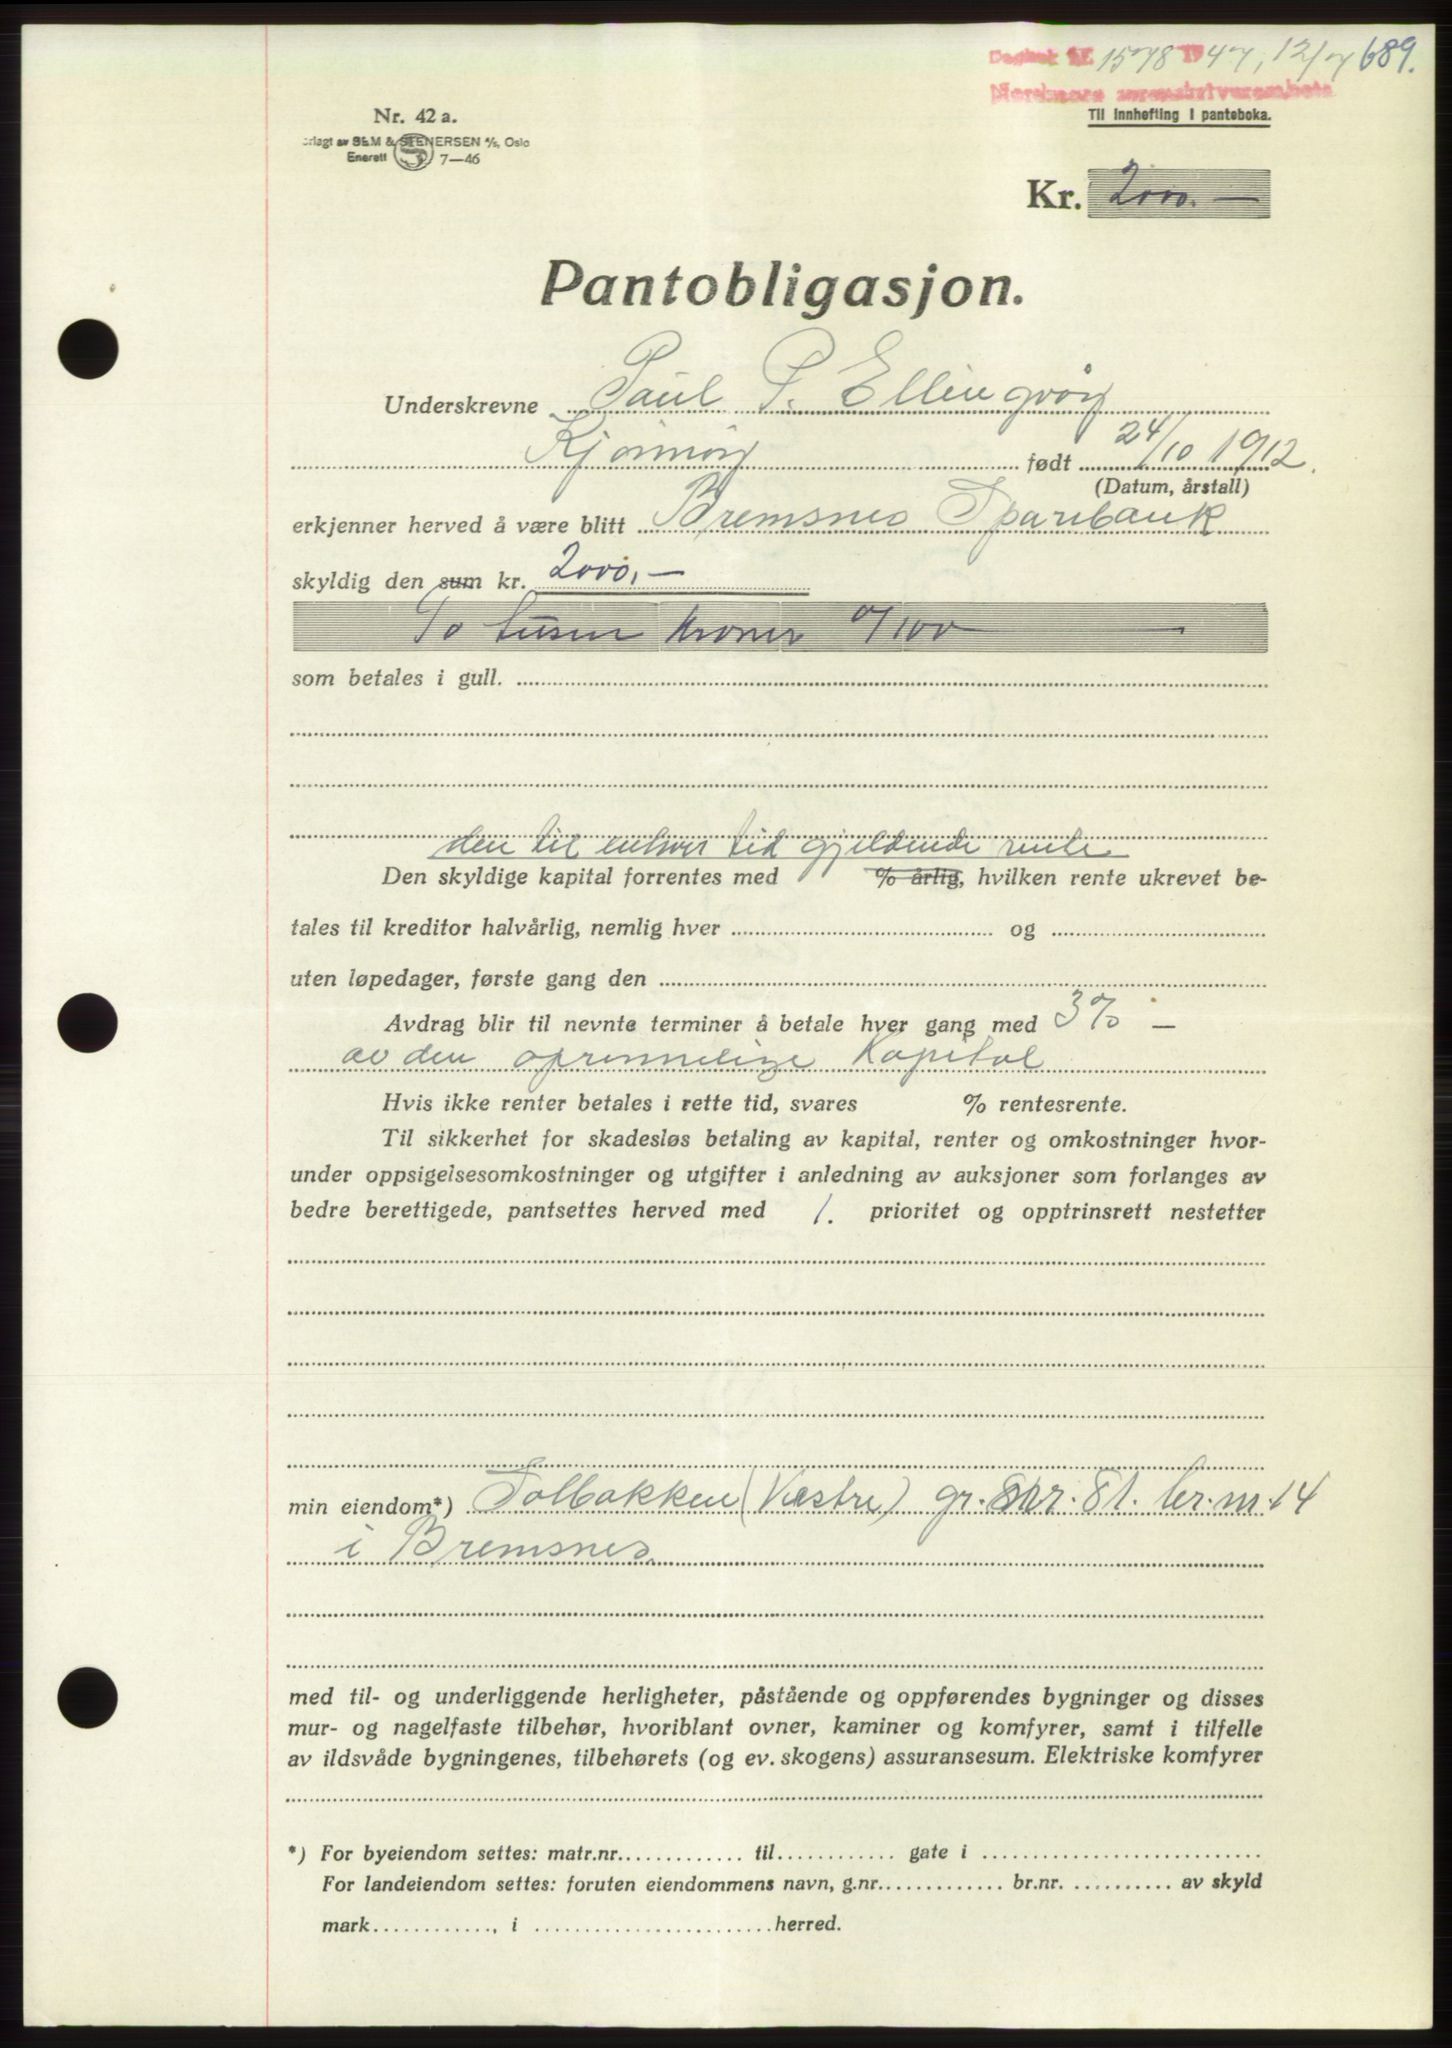 Dagbok nr. 1578 1947, 12/7 689.
Nordmøre sorenskriverembete
Til innhefting i panteboka.
Nr. 42 a.
rlagt av SEM & STENERSEN A/S, Oslo
Enerett 7—46
Kr. 2000.—
Pantobligasjon.
Underskrevne Paul P. Ellingvåg
født 24/10 1912.
(Datum, årstall)
erkjenner herved å være blitt Bremsnes Sparebank
skyldig den sum kr. 2000,—
To tusen kroner 0/100 —
som betales i gull.
den til enhver tid gjeldende rente
Den skyldige kapital forrentes med % årlig, hvilken rente ukrevet be-
tales til kreditor halvårlig, nemlig hver og
uten løpedager, første gang den
Avdrag blir til nevnte terminer å betale hver gang med 3% —
av den oprinnelige Kapital
Hvis ikke renter betales i rette tid, svares % rentesrente.
Til sikkerhet for skadesløs betaling av kapital, renter og omkostninger hvor-
under oppsigelsesomkostninger og utgifter i anledning av auksjoner som forlanges av
bedre berettigede, pantsettes herved med 1. prioritet og opptrinsrett nestetter
min eiendom*) Solbakken (Vestre) gr. nr. 81. br. nr. 14
i Bremsnes.
med til- og underliggende herligheter, påstående og oppførendes bygninger og disses
mur- og nagelfaste tilbehør, hvoriblant ovner, kaminer og komfyrer, samt i tilfelle
av ildsvåde bygningenes, tilbehørets (og ev. skogens) assuransesum. Elektriske komfyrer
*) For byeiendom settes: matr.nr. til gate i
For landeiendom settes: foruten eiendommens navn, g.nr. br.nr. av skyld
mark , i herred.